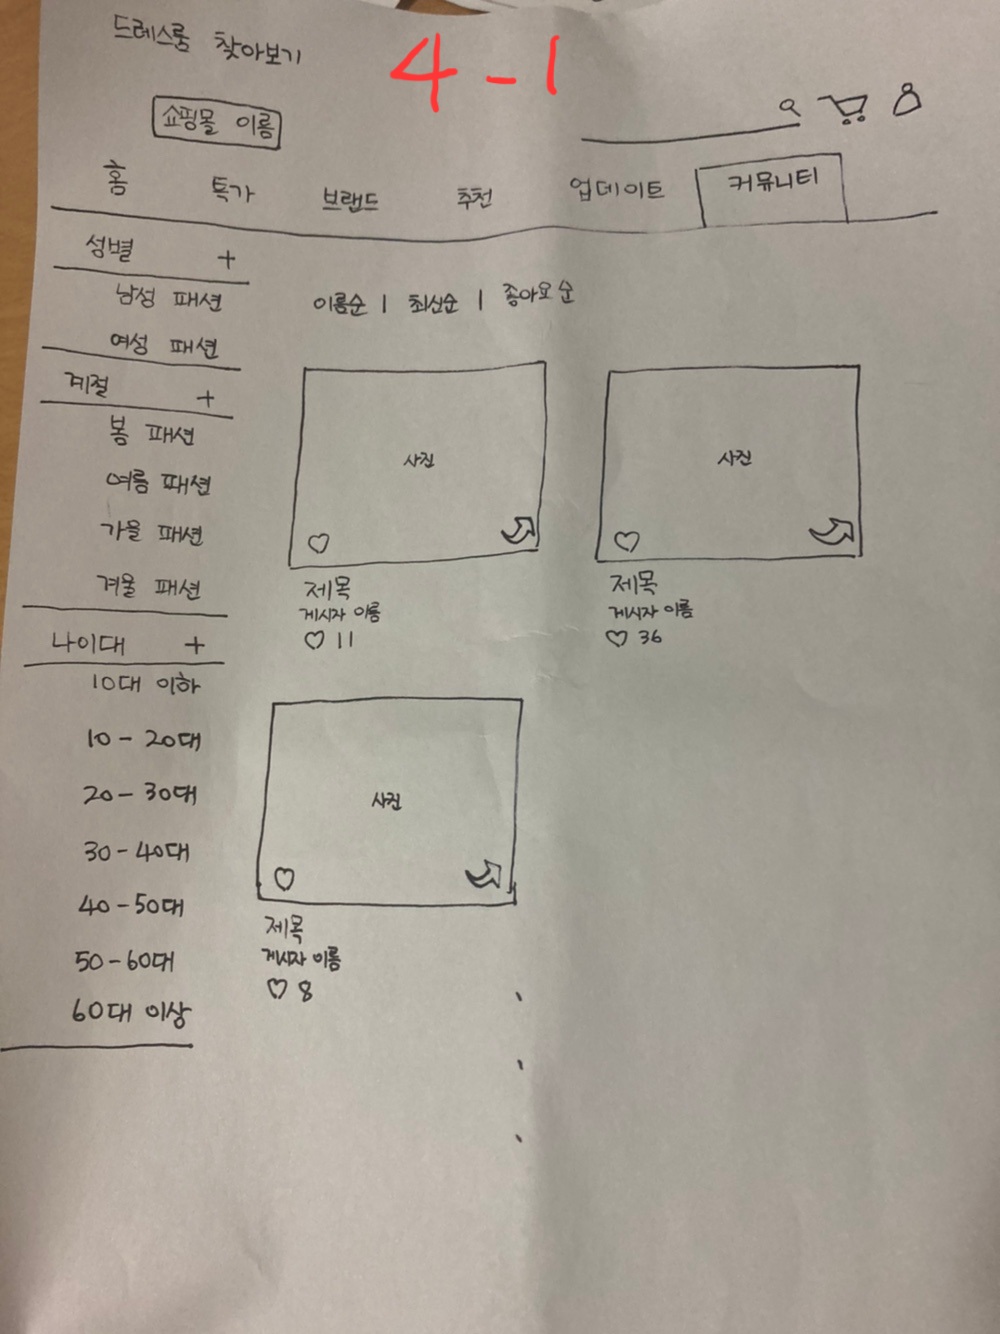 드레스룸 찾아보기
4-1
쇼핑몰 이름
홈 특가 브랜드 추천 업데이트 커뮤니티
성별 +
남성 패션
여성 패션
계절 +
봄 패션
여름 패션
가을 패션
겨울 패션
나이대 +
10대 이하
10-20대
20-30대
30-40대
40-50대
50-60대
60대 이상
이름순 | 최신순 | 좋아요 순
사진
제목
게시자 이름
♡ 11
사진
제목
게시자 이름
♡ 36
사진
제목
게시자 이름
♡ 8